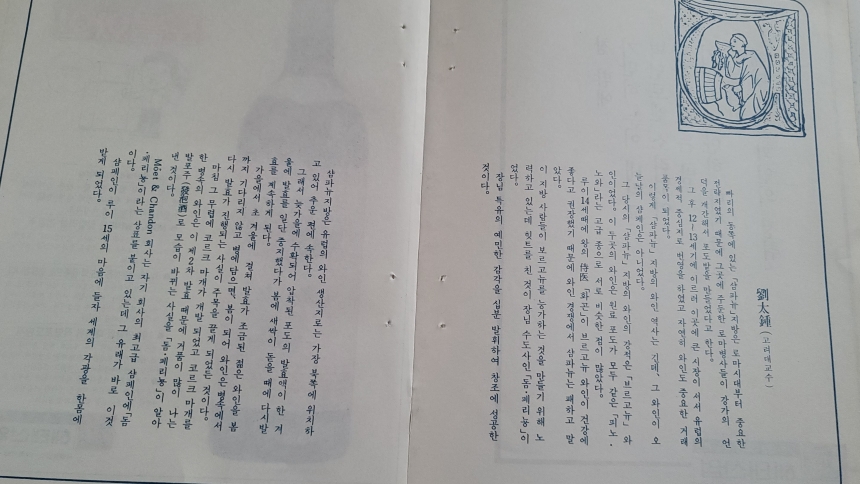 劉太鍾(고려대교수)
빠리의 동쪽에 있는 「샴파뉴」지방은 로마시대부터 중요한
전략지였기 때문에 그곳에 주둔한 로마병사들이 강가의 언
덕을 개간해서 포도밭을 만들었다고 한다.
그 후 12~13세기에 이르러 이곳에 큰 시장이 서서 유럽의
경제적 중심지로 번영을 하였고 자연히 와인도 중요한 거래
품목이 되었다.
이렇게 「샴파뉴」지방의 와인 역사는 긴데, 그 와인이 오
늘날의 샴페인은 아니었다.
그 당시의 「샴파뉴」지방의 와인의 강적은 「브르고뉴」와
인이었다. 이 두곳의 와인은 원료 포도가 모두 같은 「피노·
노와」라는 고급 종으로 서로 비슷한 점이 많았다.
루이14세때에 왕의 侍医 「화곤」이 브르고뉴 와인이 건강에
좋다고 권장했기 때문에 와인 경쟁에서 샴파뉴는 패하고 말
았다.
이 지방 사람들이 보르고뉴를 능가하는 것을 만들기 위해 노
력하고 있는데 힛트를 친 것이 장님 수도사인 「돔·페리뇽」이
었다.
장님 특유의 예민한 감각을 십분 발휘하여 창조에 성공한
것이다.
샴파뉴지방은 유럽의 와인 생산지로는 가장 북쪽에 위치하
고 있어 추운 편에 속한다.
그래서 늦가을에 수확되어 압착된 포도의 발효액이 한 겨
울에 발효를 일단 중지했다가 봄에 새싹이 돋을 때에 다시발
효를 계속하게 된다.
가을에서 초 겨울에 걸쳐 발효가 조금된 젊은 와인을 봄
까지 기다리지 않고 병에 담으면, 봄이 되어 와인은 병속에서
다시 발효가 진행되는 사실이 주목을 끌게 되었던 것이다.
마침 그 무렵에 코르크 마개가 개발 되었고 코르크 마개를
한 병속의 와인은 이 제2차 발효 때문에 거품이 많이 나는
발포주(發泡酒)로 모습이 바뀌는 사실을 「돔·페리뇽」이 알아
낸 것이다.
Moët & Chandon 회사는 자기 회사의 최고급 샴페인에 「돔
·페리뇽」이라는 상표를 붙이고 있는데 그 유래가 바로 이것
이다.
샴페인이 루이 15세의 마음에 들자 세계의 각광을 한몸에
받게 되었다.